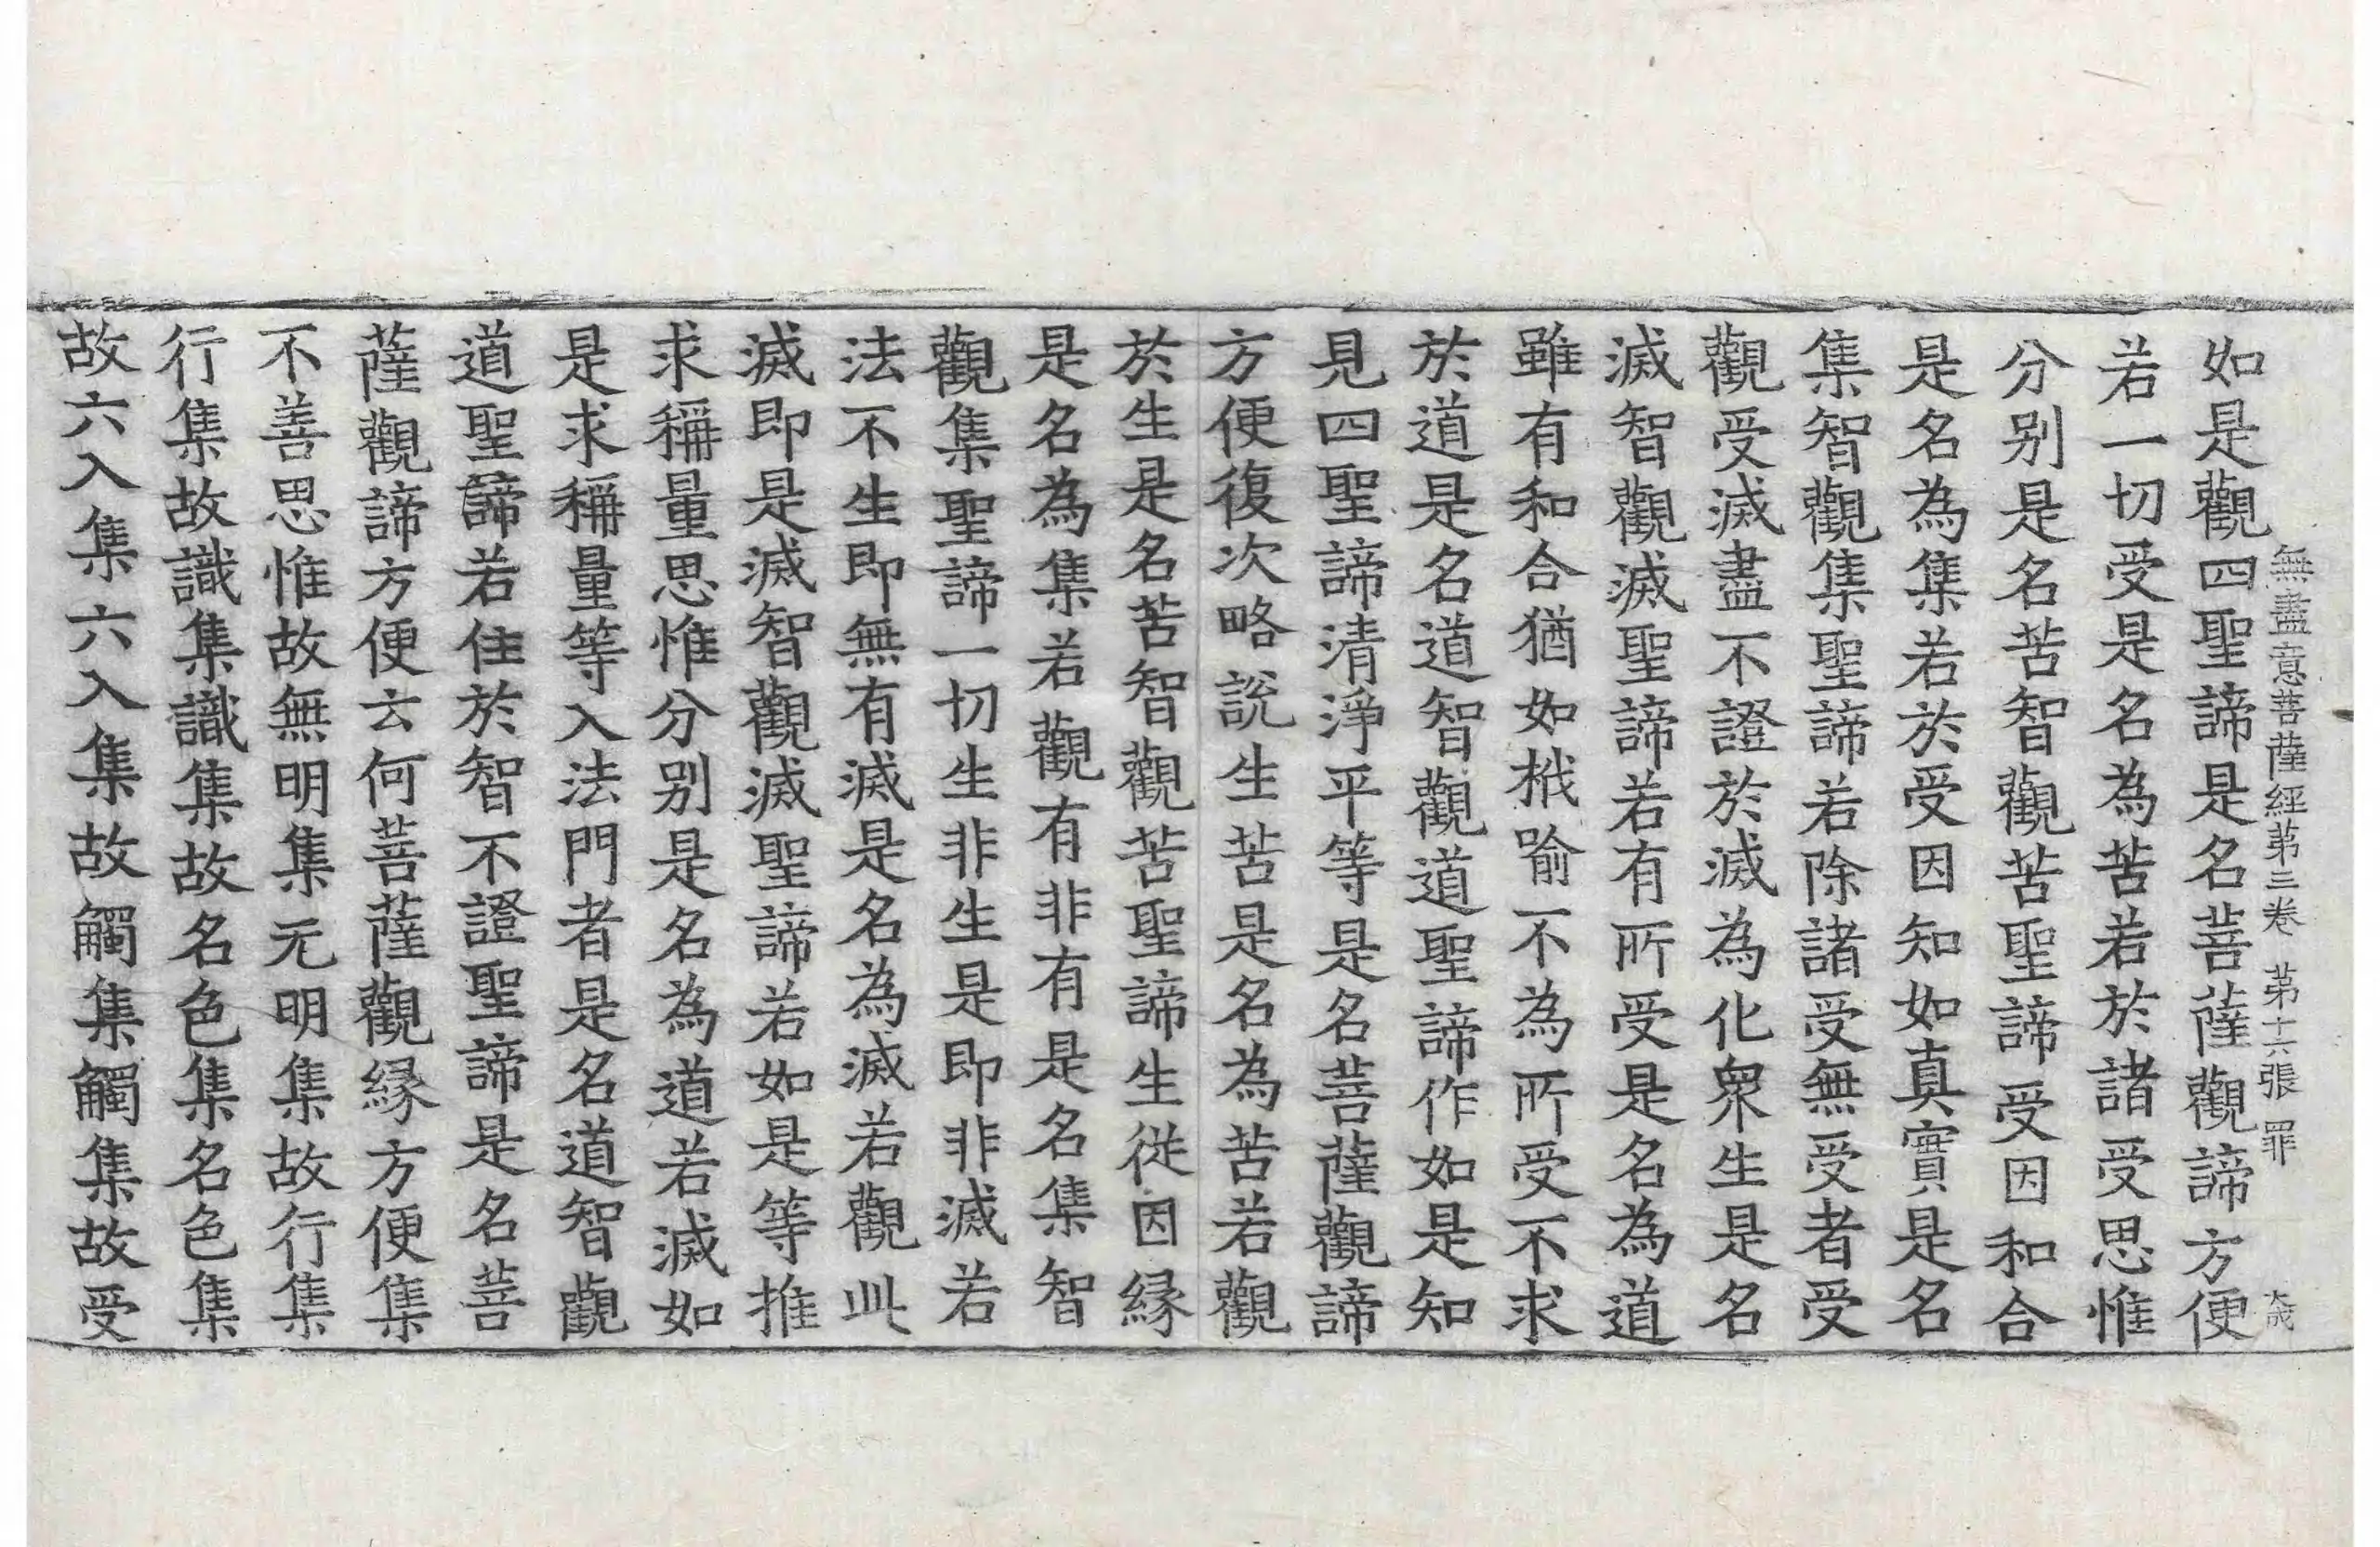 無盡意菩薩經第三卷 第十六張 罪 大成
如是觀四聖諦是名菩薩觀諦方便
若一切受是名為苦若於諸受思惟
分别是名苦智觀苦聖諦受因和合
是名為集若於受因知如真實是名
集智觀集聖諦若除諸受無受者受
觀受滅盡不證於滅為化衆生是名
滅智觀滅聖諦若有所受是名為道
雖有和合猶如栰喻不為所受不求
於道是名道智觀道聖諦作如是知
見四聖諦清淨平等是名菩薩觀諦
方便復次略說生苦是名為苦若觀
於生是名苦智觀苦聖諦生從因緣
是名為集若觀有非有是名集智
觀集聖諦一切生非生是即非滅若
法不生即無有滅是名為滅若觀此
滅即是滅智觀滅聖諦若如是等推
求稱量思惟分别是名為道若滅如
是求稱量等入法門者是名道智觀
道聖諦若住於智不證聖諦是名菩
薩觀諦方便云何菩薩觀緣方便集
不善思惟故無明集无明集故行集
行集故識集識集故名色集名色集
故六入集六入集故觸集觸集故受